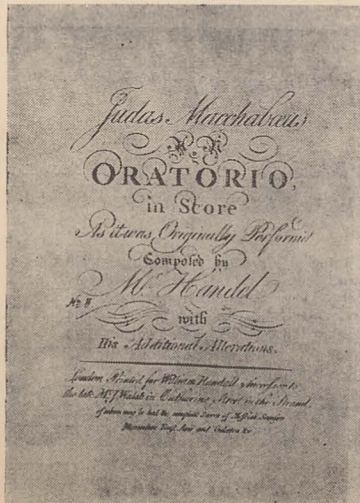 Judas Macchabæus
AN
ORATORIO,
in Score
As it was Originally Perform'd
Composed by
Mr. Handel
with
His Additional Alterations.
London Printed for William Randall Successor to
the late Mr. J. Walsh in Catharine Street in the Strand
of whom may be had the compleat Scores of